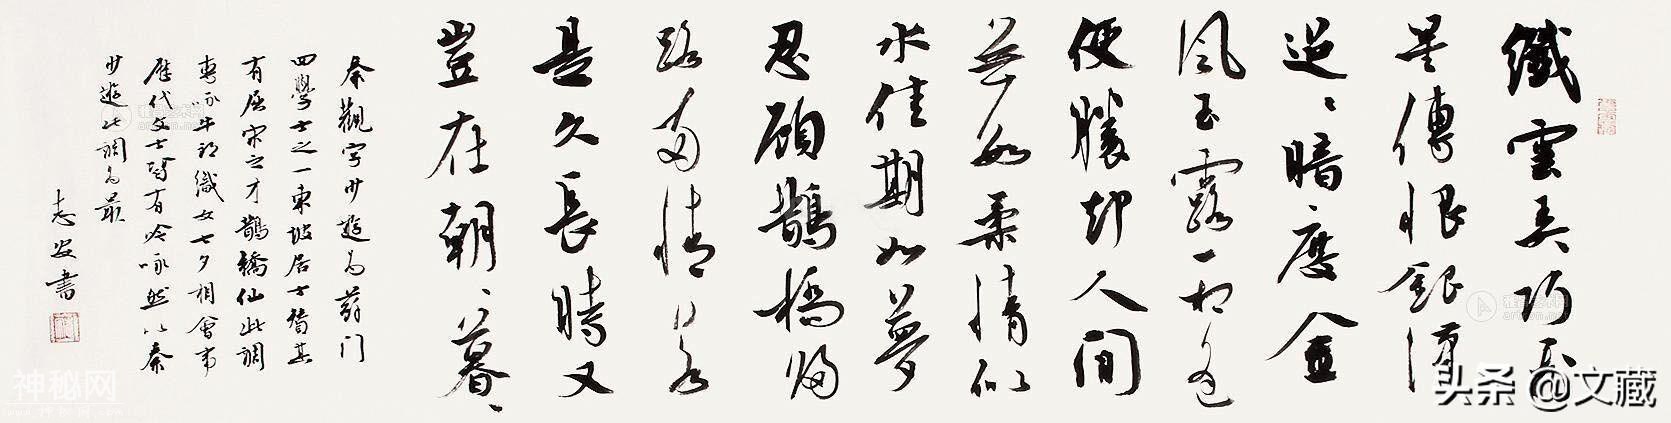 纖雲弄巧飛
星傳恨銀漢
迢、暗度金
風玉露一相逢
便勝却人間
無數柔情似
水佳期如夢
忍顧鵲橋歸
路兩情若
是久長時又
豈在朝、暮、
秦觀字少遊為蘇门
四學士之一東坡居士其
有屈宋之才鵲橋仙此調
專詠牛郎織女七夕相會事
歷代文士皆有吟詠然以秦
少遊此調為最
志安書
神秘网
头条 @文藏